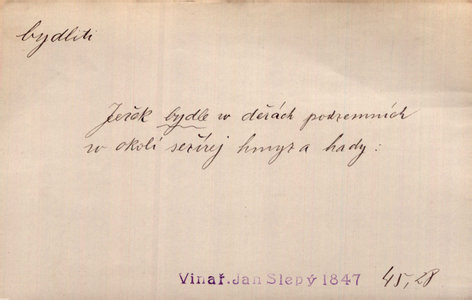 bydliti
Ježek bydle w děrách podzemních
w okolí sežírej hmyz a hady:
Vinař.Jan Slepý 1847 45,28